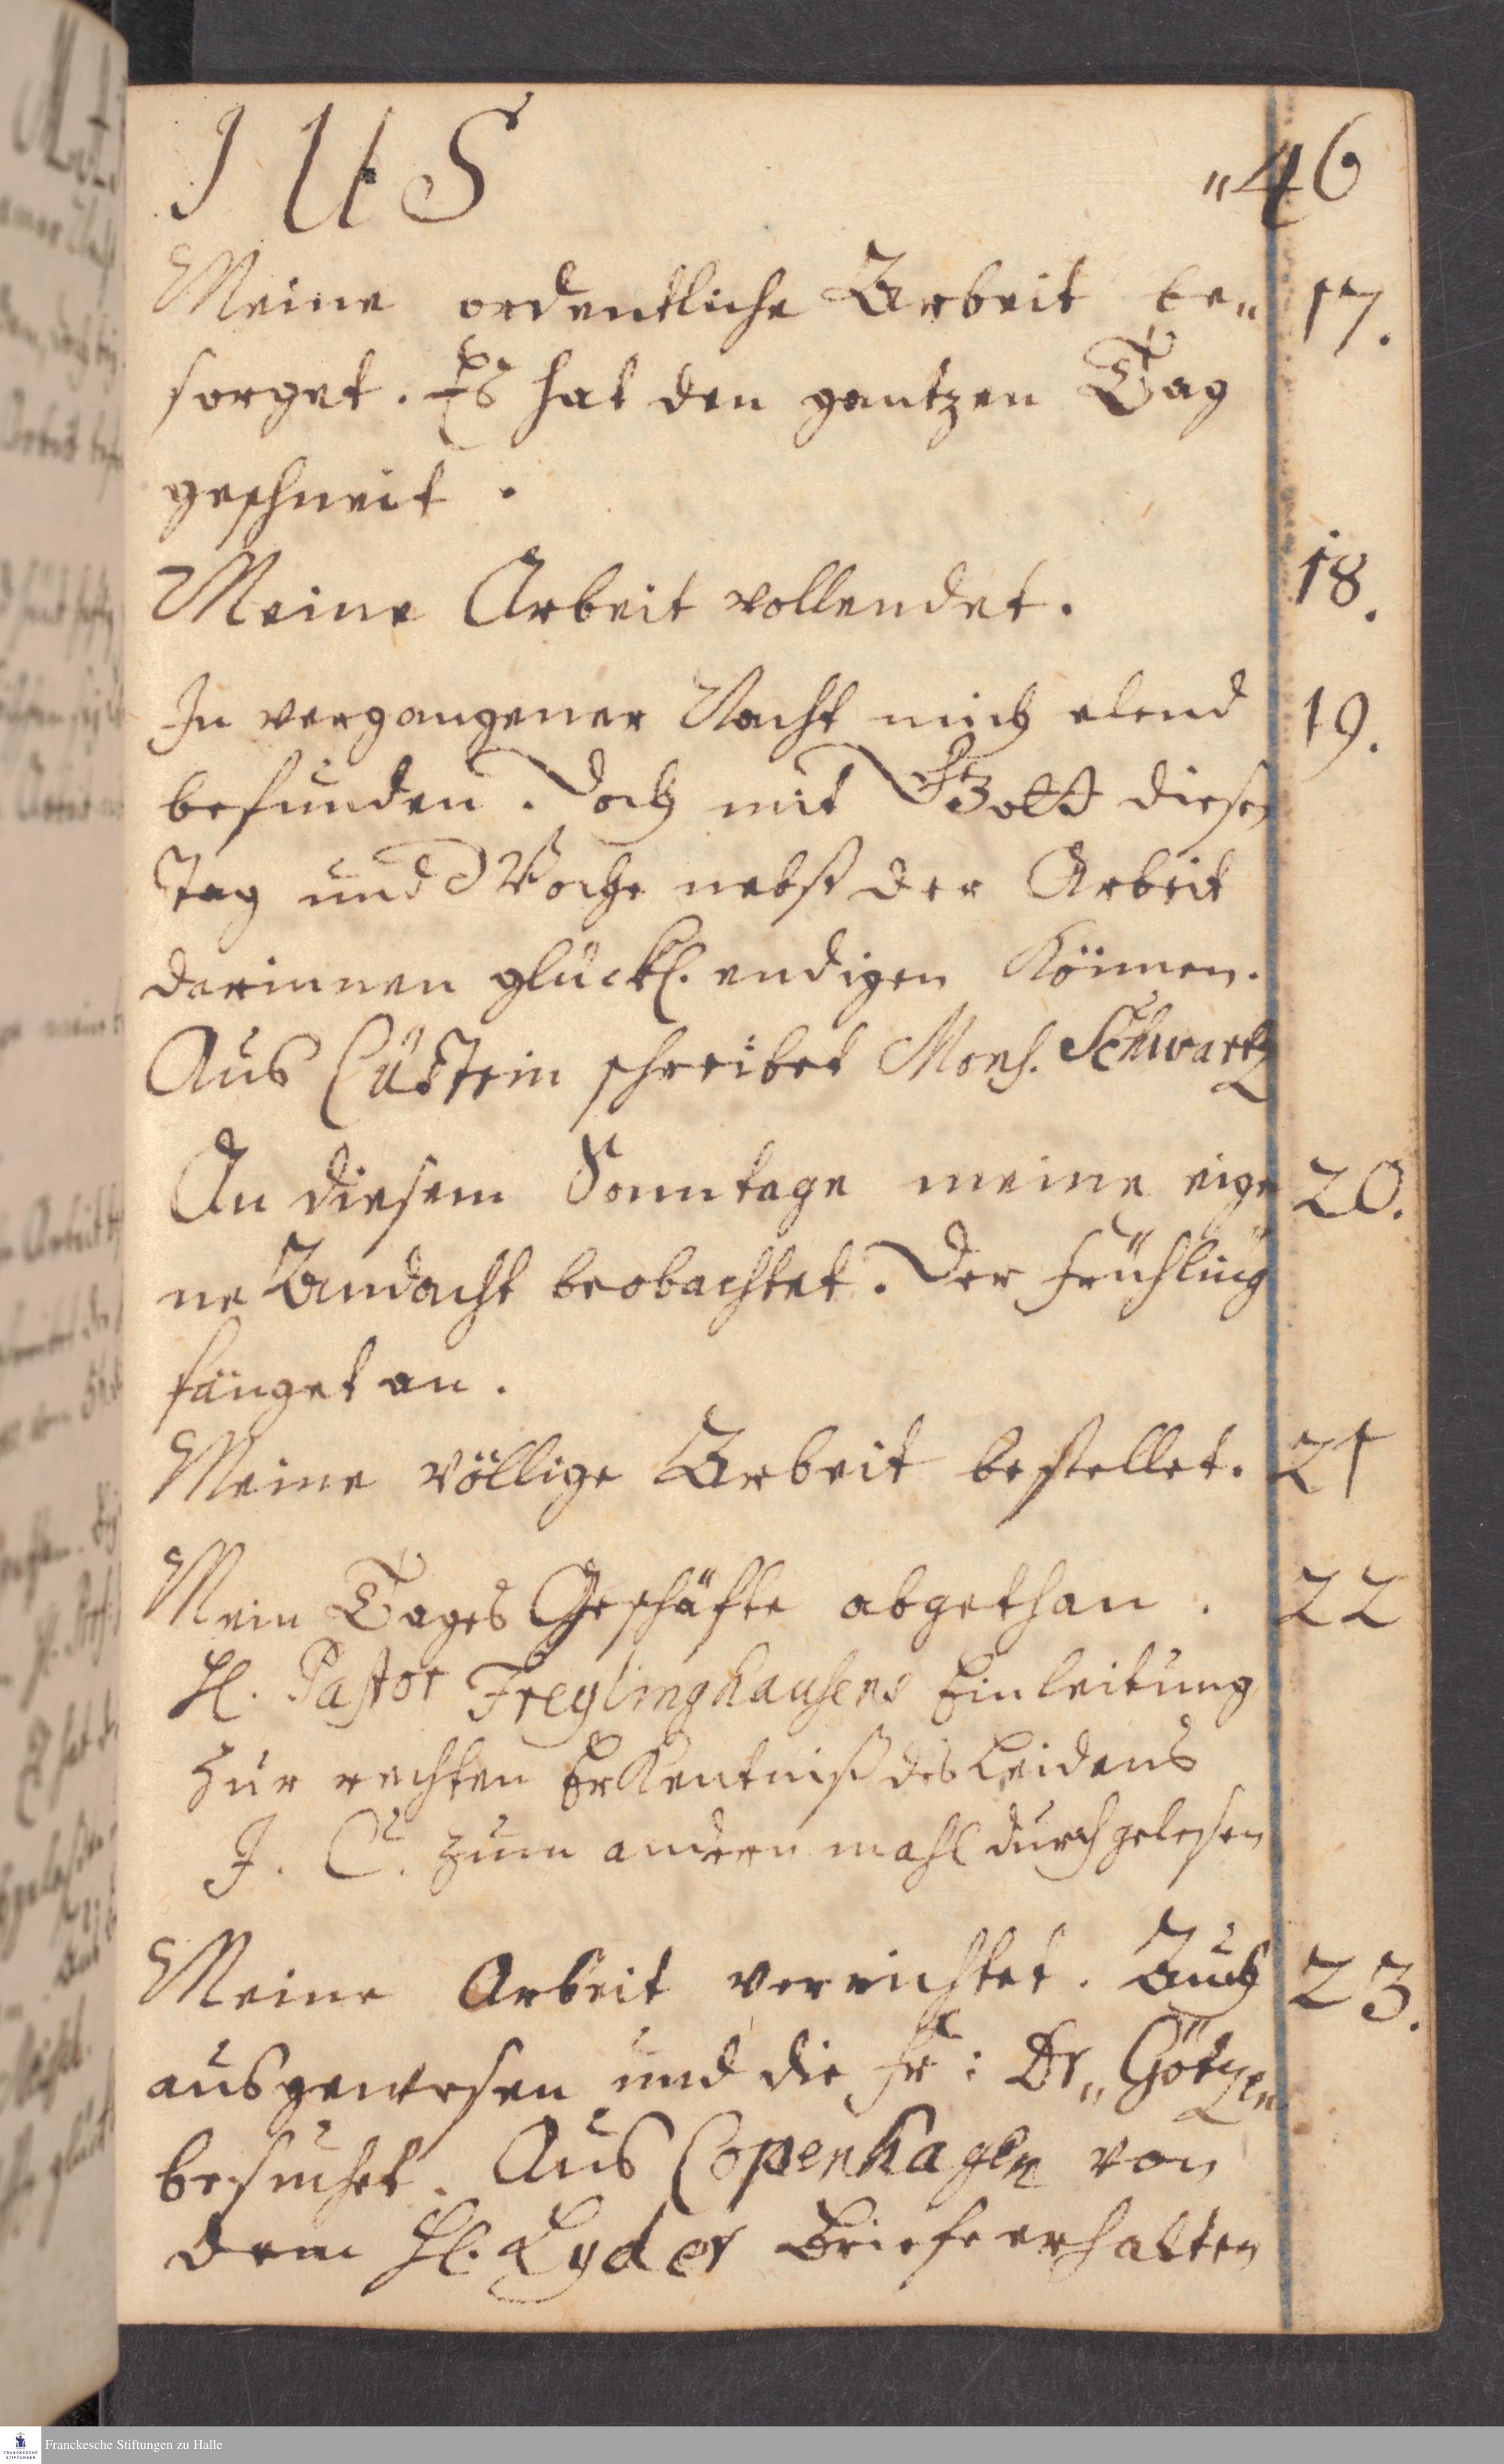 IUS „46
Meine ordentliche Arbeit be„ 17.
sorget. Es hat den gantzen Tag
geschneit.
Meine Arbeit vollendet. 18.
In vergangener Nacht mich elend 19.
befunden. Doch mit Gott diesen
Tag und Woche nebst der Arbeit
darinnen glückl. endigen können.
Aus Cüstrin schreibet Mons. Schwartz
An diesem Sonntage meine eige 20.
ne Andacht beobachtet. Der Frühling
fänget an.
Meine völlige Arbeit bestellet. 21
Mein Tages Geschäfte abgethan. 22
H. Pastor Freylinghausens Einleitung
zur rechten Erkentniß des Leidens
J. C. zum andern mahl durchgelesen
Meine Arbeit verrichtet. Auch 23.
ausgewesen und die Fr: Dr„ Götzen
besuchet. Aus Copenhagen von
dem H. Lyder Briefe erhalten
Franckesche Stiftungen zu Halle